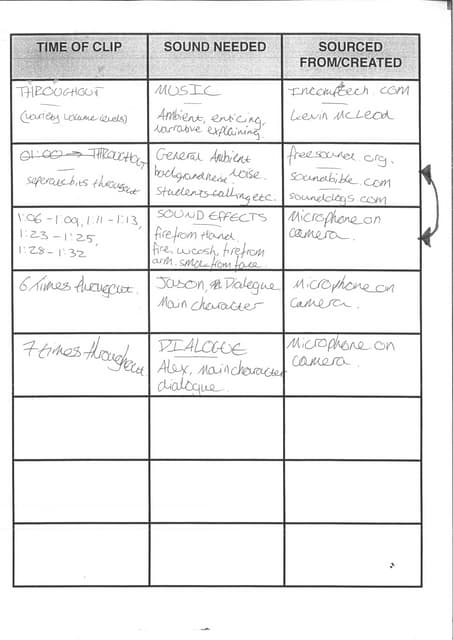 TIME OF CLIP
SOUND NEEDED
SOURCED
FROM/CREATED
THROUGHOUT
(varying volume levels)
MUSIC
Ambient, enticing,
narrative explaining.
Incomptech com
Kevin McLeod
01:00 → THROUGHOUT
seperate bits throughout
General Ambient
background noise.
students talking etc.
freesound.org.
soundbible.com
sounddogs.com
1:06 - 1:09, 1:11 - 1:13,
1:23 - 1:25,
1:28 - 1:32
SOUND EFFECTS
fire from Hand
fire, woosh, fire from
arm. smoke from face
Microphone on
camera.
6 Times throughout.
Jason, Dialogue
Main character
Microphone on
camera.
7 times throughout
DIALOGUE
Alex, Main character
dialogue.
Microphone on
camera.